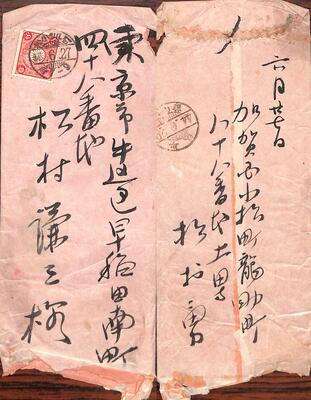 東京市牛込区早稲田南町
四十八番地
松村謙三様
六月廿七日
加賀国小松町龍助町
八十八番地土男
松村